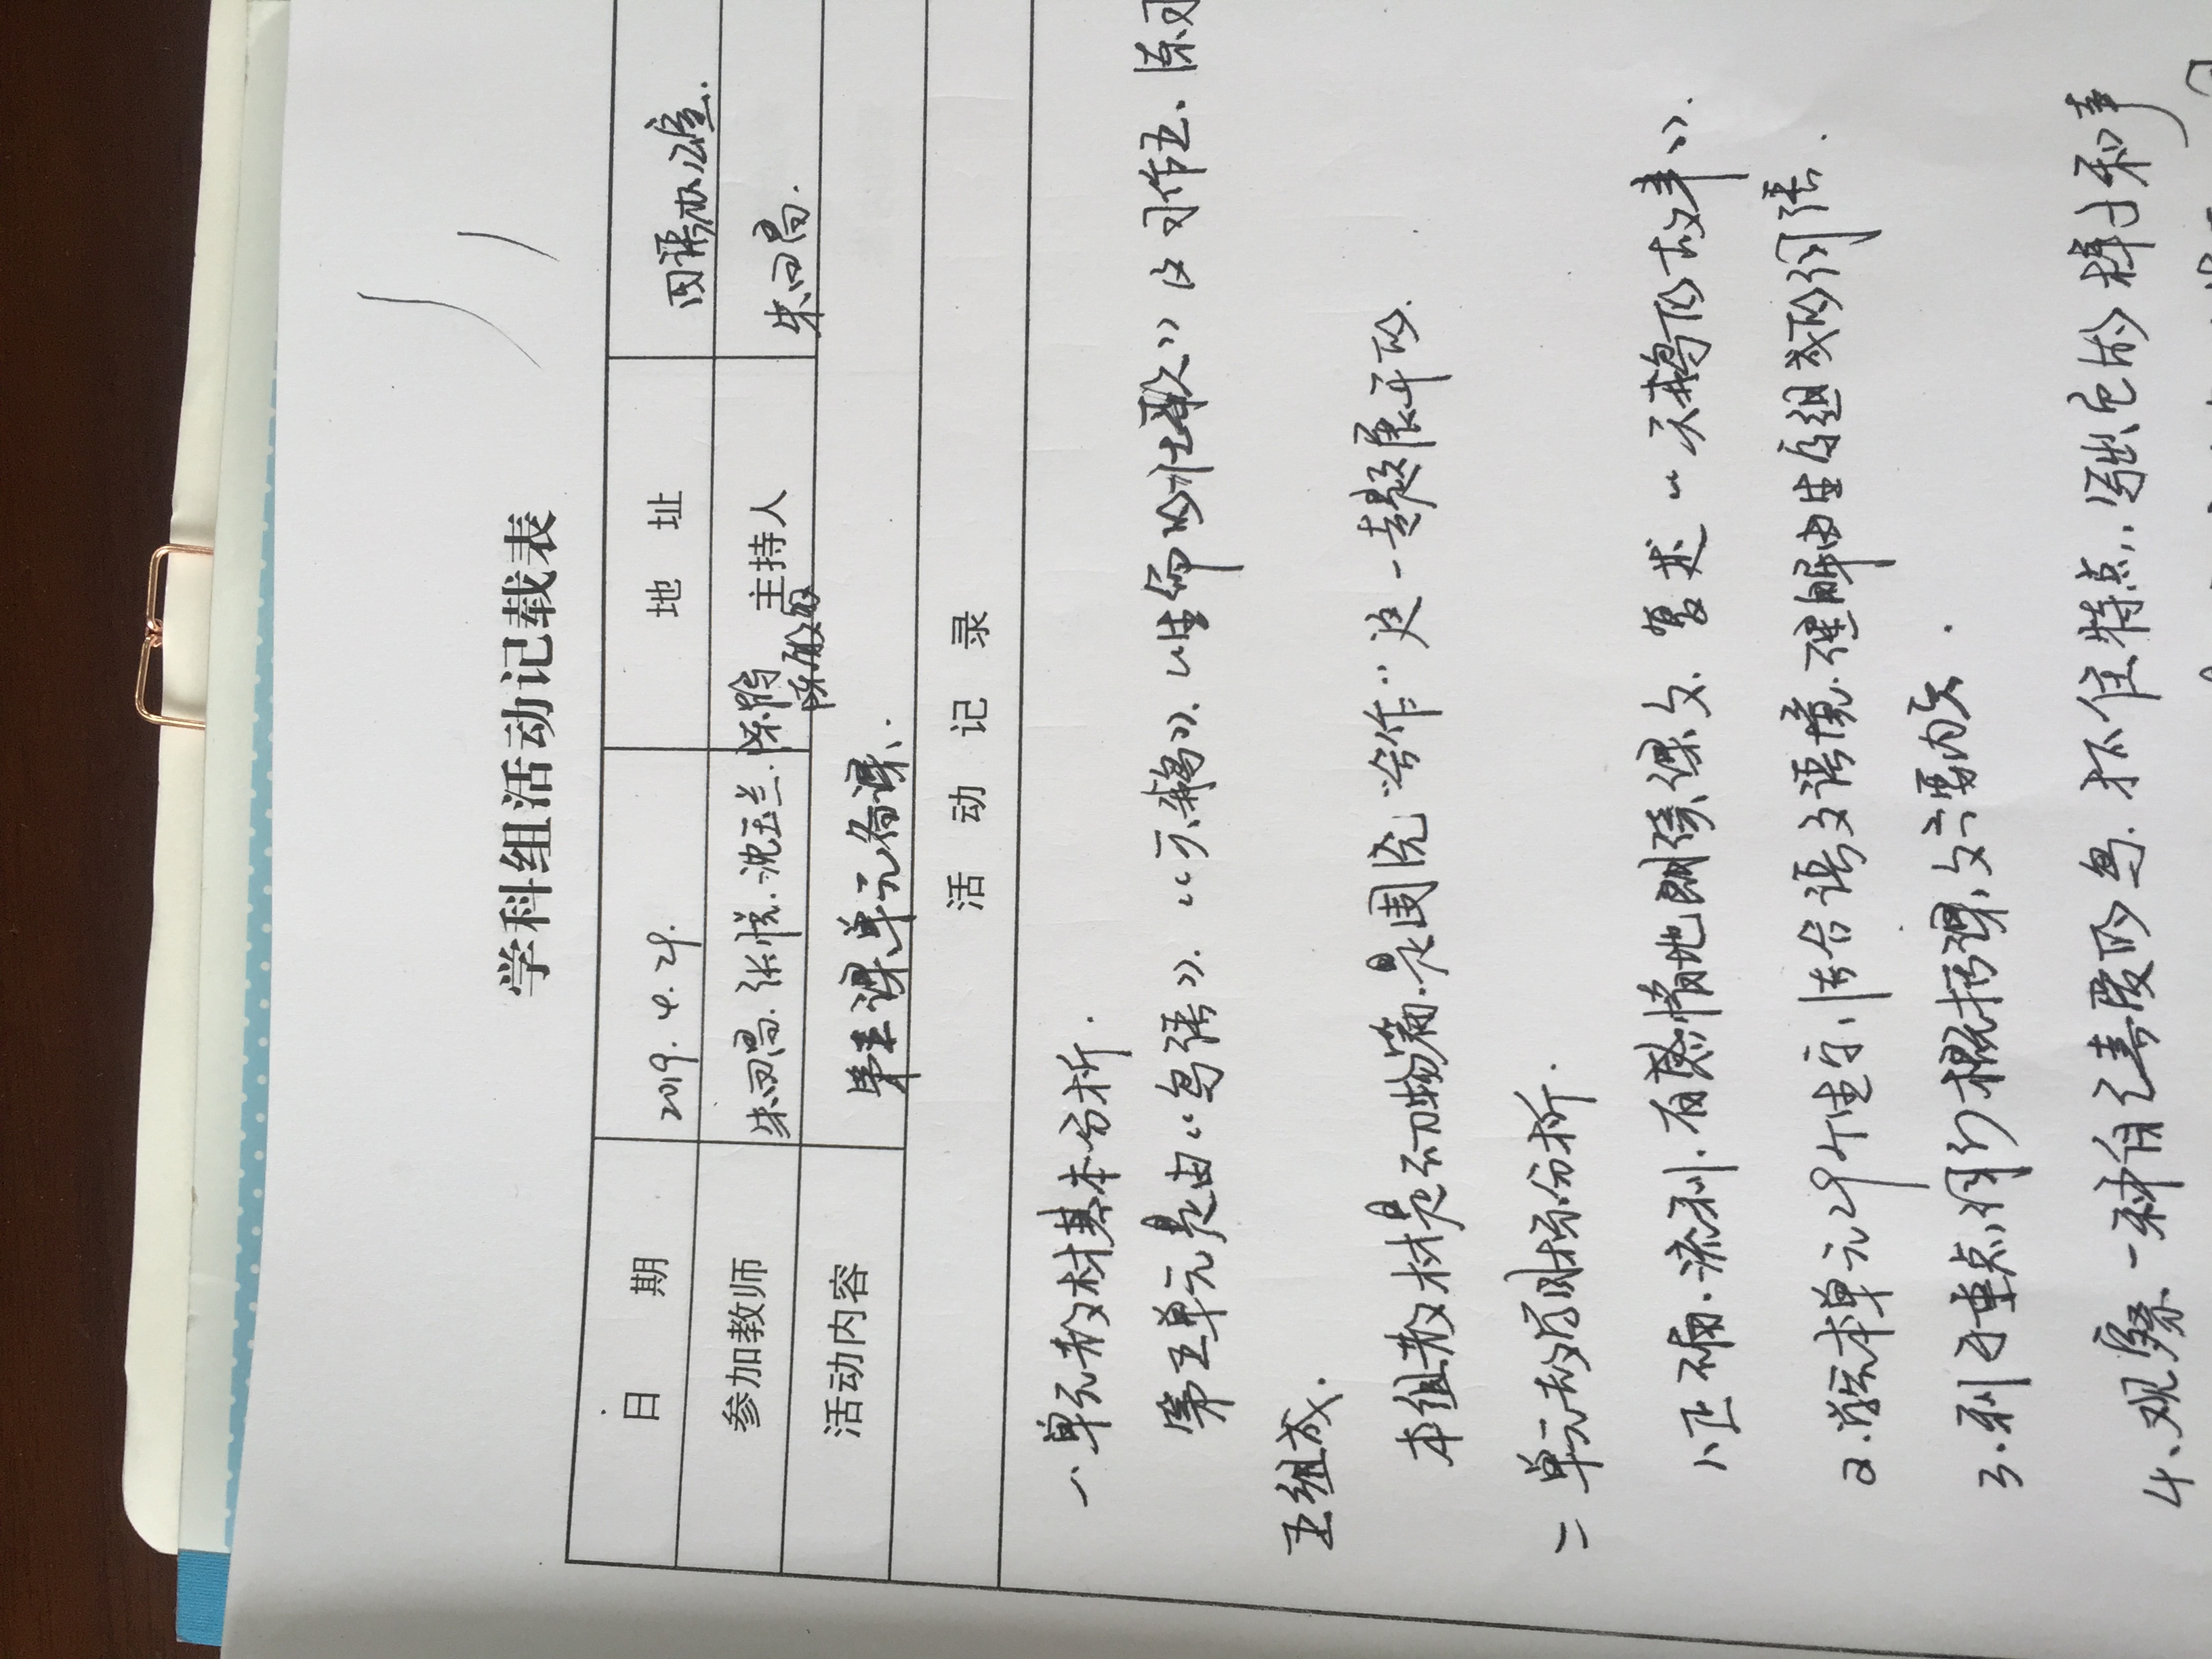 学科组活动记载表
日 期 2019.4.29. 地 址 四语办公室.
参加教师 张悦.沈玉兰. 主持人
活动内容 第五课单元备课.
活 动 记 录
一、单元教材基本分析.
第五单元是由《鸟语》.《天鹅》.《生命的壮歌》及习作五、练习
五组成.
本组教材是动物篇.是围绕“合作”这一专题展开的.
二 单元教学目标分析.
1、正确.流利.有感情地朗读课文.复述《天鹅的故事》.
2.学会本单元29个生字,结合语文语境.理解由生字组成的词语.
3.利于重点词句概括课文主要内容.
4、观察一种自己喜爱的鸟.抓住特点,写出它的样子和声